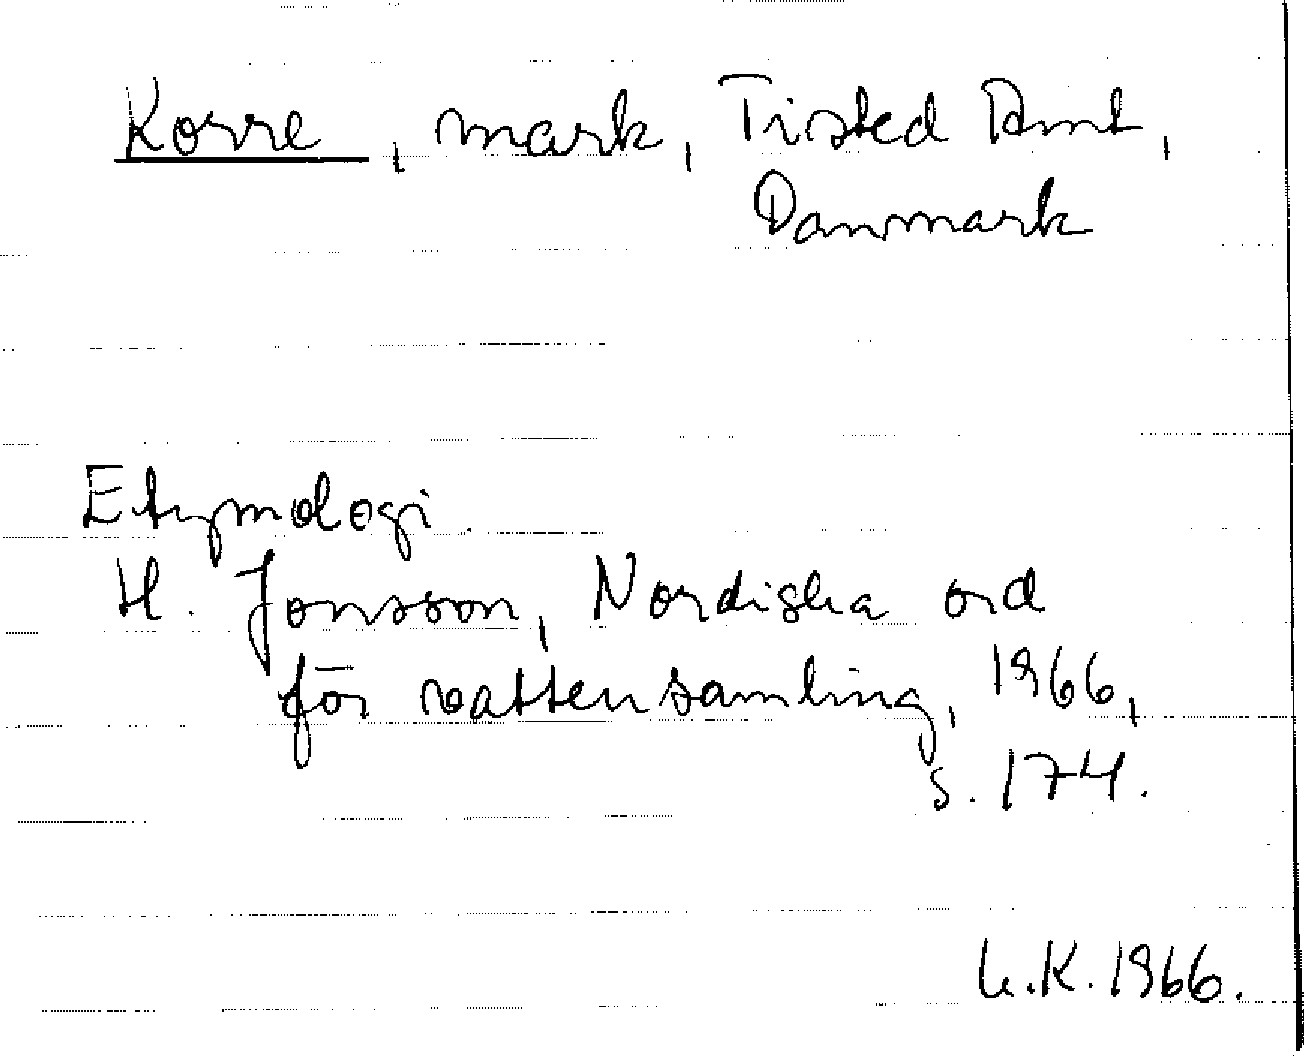 Korre, mark, Tisted Amt,
Danmark
Etymologi.
H. Jonsson, Nordiska ord
för vattensamling, 1966,
s. 174.
L.K. 1966.